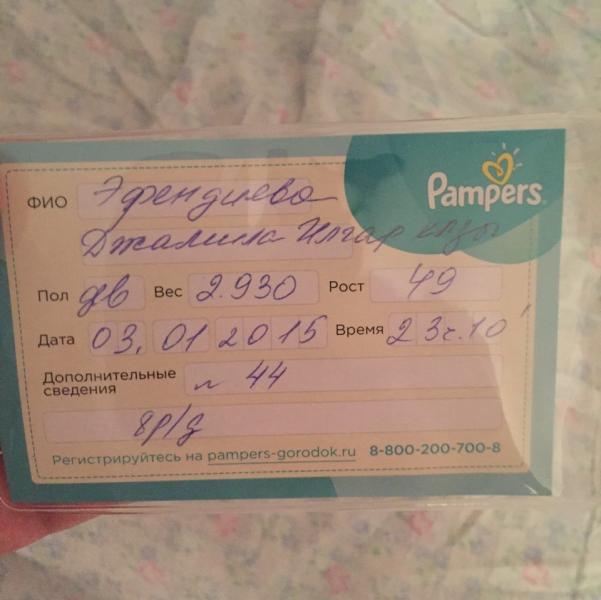 Pampers
ФИО Эфендиева
Джамила Илгар кызы
Пол дв Вес 2.930 Рост 49
Дата 03.01 2015 Время 23ч.10'
Дополнительные
сведения 44
8р/д
Регистрируйтесь на pampers-gorodok.ru 8-800-200-700-8